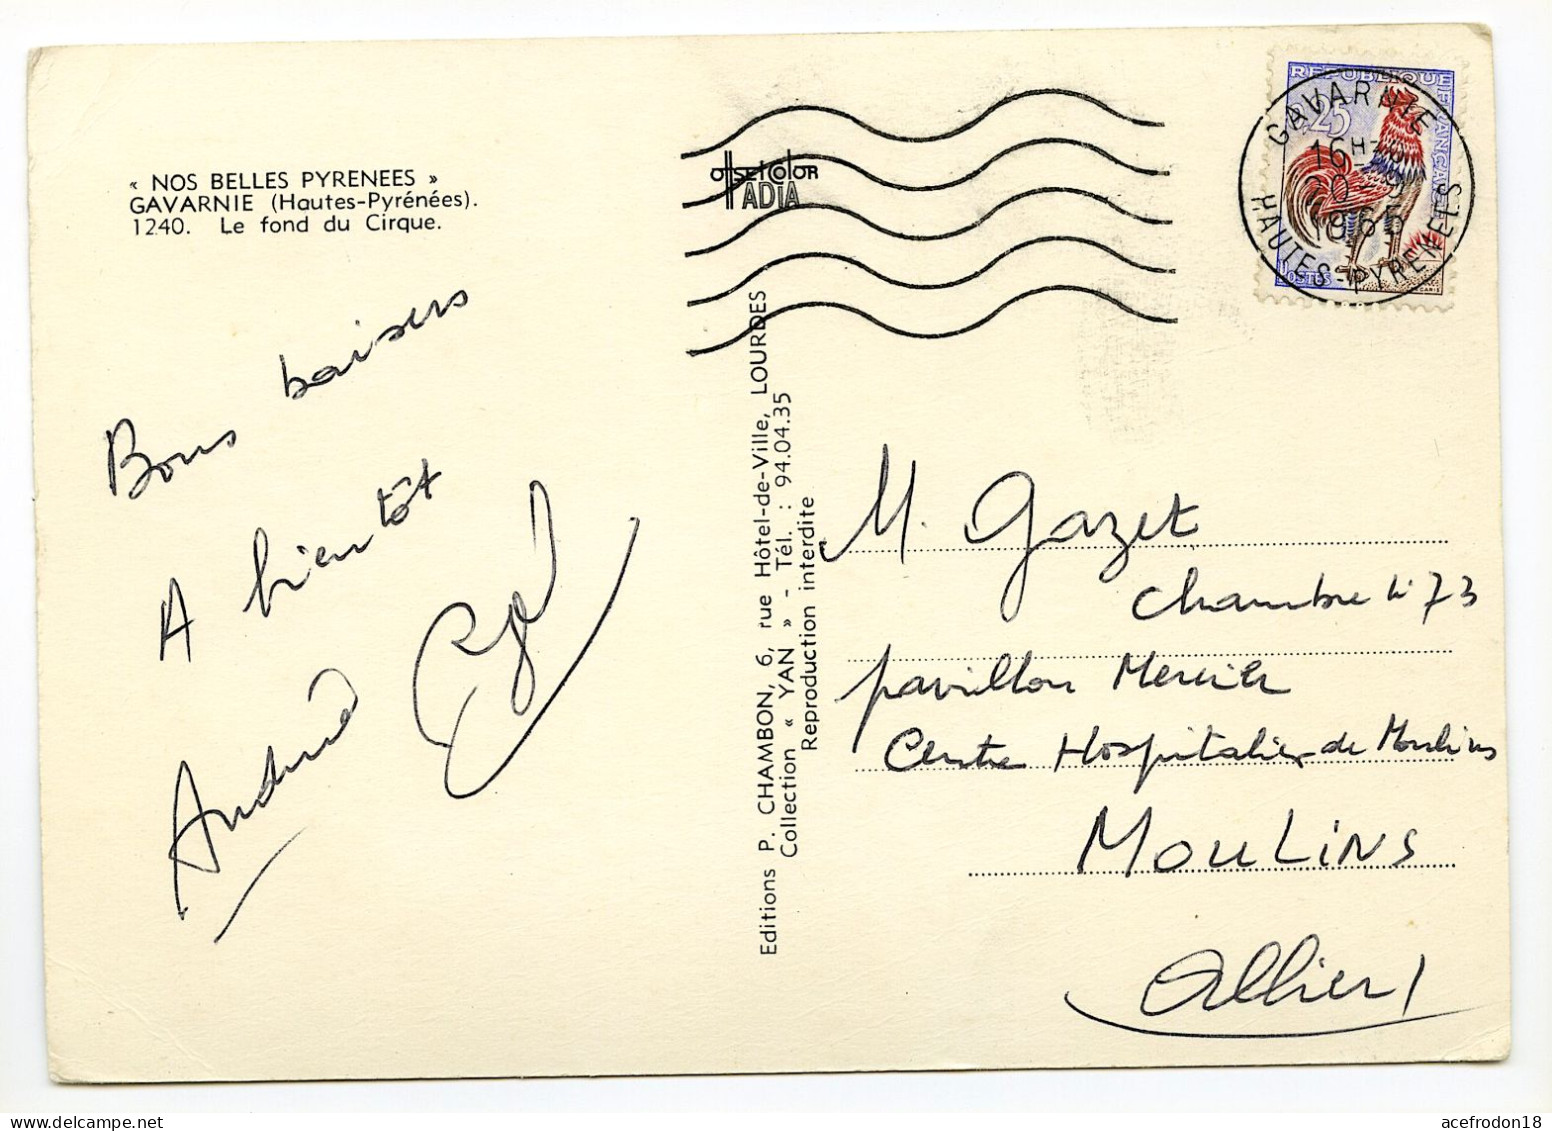 « NOS BELLES PYRENEES »
GAVARNIE (Hautes-Pyrénées).
1240. Le fond du Cirque.
Bons baisers
A bientôt
André
offset color
IADIA
Editions P. CHAMBON, 6, rue Hôtel-de-Ville, LOURDES
Collection « YAN » - Tél. : 94.04.35
Reproduction interdite
REPUBLIQUE FRANÇAISE
0,25
POSTES
GAVARNIE
16H
20-9
1965
HAUTES-PYRENEES
M. Gazet
Chambre n° 73
pavillon Mercier
Centre Hospitalier de Moulins
MOULINS
Allier
acefrodon18